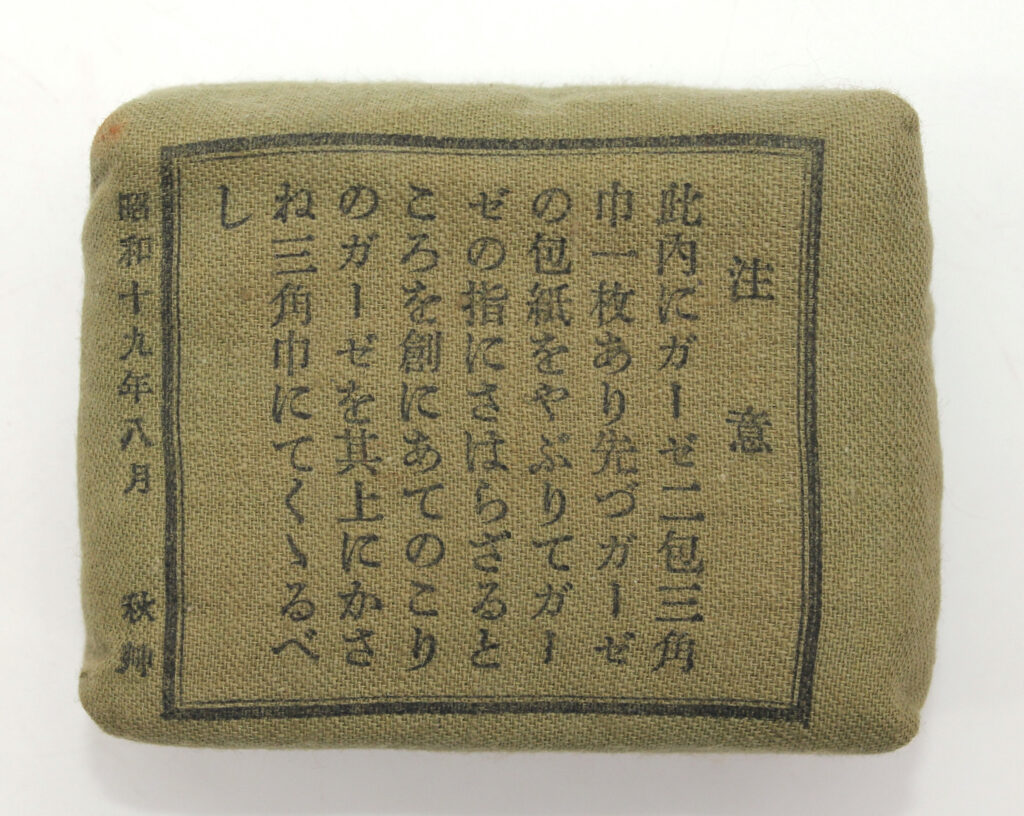 注意
此内にガーゼ二包三角
巾一枚あり先づガーゼ
の包紙をやぶりてガー
ゼの指にさはらざると
ころを創にあてのこり
のガーゼを其上にかさ
ね三角巾にてくゝるべ
し
昭和十九年八月 秋師